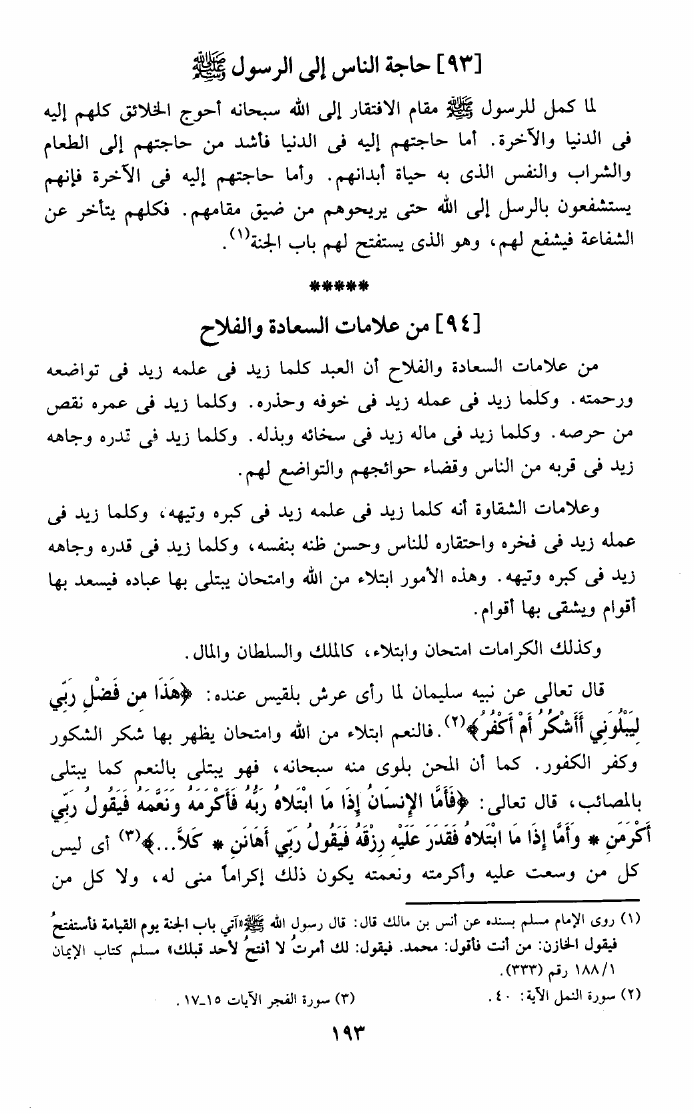 [٩٣] حاجة الناس إلى الرسول ﷺ
لما كمل للرسول ﷺ مقام الافتقار إلى الله سبحانه أحوج الخلائق كلهم إليه
فى الدنيا والآخرة. أما حاجتهم إليه فى الدنيا فأشد من حاجتهم إلى الطعام
والشراب والنفس الذى به حياة أبدانهم. وأما حاجتهم إليه فى الآخرة فإنهم
يستشفعون بالرسل إلى الله حتى يريحوهم من ضيق مقامهم. فكلهم يتأخر عن
الشفاعة فيشفع لهم، وهو الذى يستفتح لهم باب الجنة(١).
*****
[٩٤] من علامات السعادة والفلاح
من علامات السعادة والفلاح أن العبد كلما زيد فى علمه زيد فى تواضعه
ورحمته. وكلما زيد فى عمله زيد فى خوفه وحذره. وكلما زيد فى عمره نقص
من حرصه. وكلما زيد فى ماله زيد فى سخائه وبذله. وكلما زيد فى قدره وجاهه
زيد فى قربه من الناس وقضاء حوائجهم والتواضع لهم.
وعلامات الشقاوة أنه كلما زيد فى علمه زيد فى كبره وتيهه، وكلما زيد فى
عمله زيد فى فخره واحتقاره للناس وحسن ظنه بنفسه، وكلما زيد فى قدره وجاهه
زيد فى كبره وتيهه. وهذه الأمور ابتلاء من الله وامتحان يبتلى بها عباده فيسعد بها
أقوام ويشقى بها أقوام.
وكذلك الكرامات امتحان وابتلاء، كالملك والسلطان والمال.
قال تعالى عن نبيه سليمان لما رأى عرش بلقيس عنده: ﴿هَذَا مِن فَضْلِ رَبِّي
لِيَبْلُوَنِي أَأَشْكُرُ أَمْ أَكْفُرُ﴾(٢). فالنعم ابتلاء من الله وامتحان يظهر بها شكر الشكور
وكفر الكفور. كما أن المحن بلوى منه سبحانه، فهو يبتلى بالنعم كما يبتلى
بالمصائب، قال تعالى: ﴿فَأَمَّا الإِنسَانُ إِذَا مَا ابْتَلاهُ رَبُّهُ فَأَكْرَمَهُ وَنَعَّمَهُ فَيَقُولُ رَبِّي
أَكْرَمَنِ * وَأَمَّا إِذَا مَا ابْتَلاهُ فَقَدَرَ عَلَيْهِ رِزْقَهُ فَيَقُولُ رَبِّي أَهَانَنِ * كَلاَّ...﴾(٣) أى ليس
كل من وسعت عليه وأكرمته ونعمته يكون ذلك إكراماً منى له، ولا كل من
(١) روى الإمام مسلم بسنده عن أنس بن مالك قال: قال رسول الله ﷺ «آتي باب الجنة يوم القيامة فأستفتحُ
فيقول الخازن: من أنت فأقول: محمد. فيقول: لك أمرتُ لا أفتحُ لأحد قبلك» مسلم كتاب الإيمان
١/ ١٨٨ رقم (٣٣٣).
(٢) سورة النمل الآية: ٤٠. (٣) سورة الفجر الآيات ١٥-١٧.
١٩٣